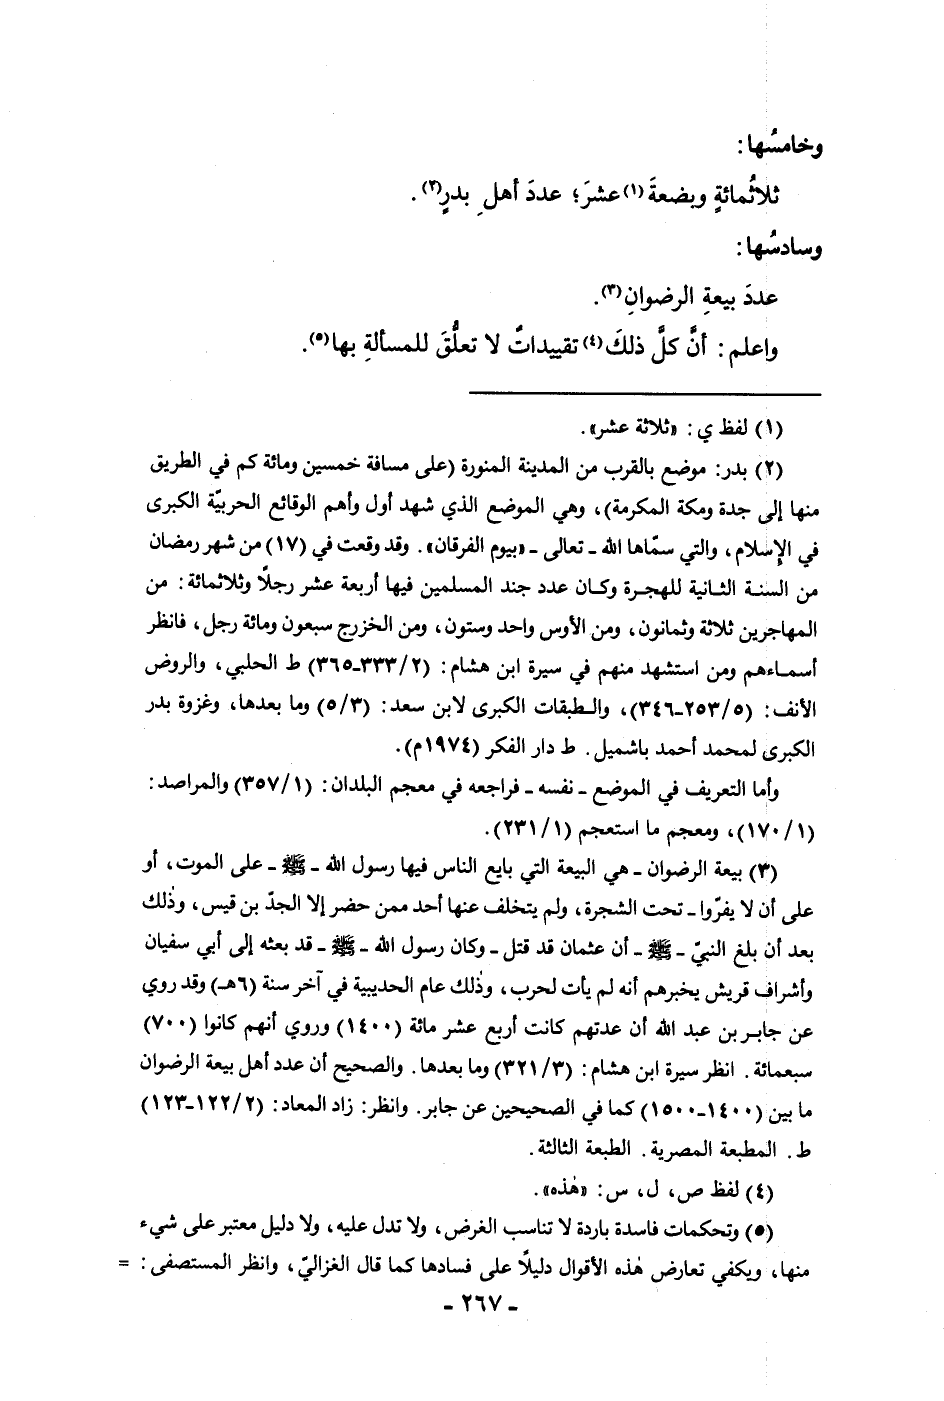 وخامسُها:
ثلاثُمائةٍ وبضعةَ(١) عشرَ؛ عددَ أهلِ بدرٍ(٢).
وسادسُها:
عددَ بيعةِ الرضوانِ(٣).
واعلم: أنَّ كلَّ ذلكَ(٤) تقييداتٌ لا تعلُّقَ للمسألةِ بها(٥).
(١) لفظ ي: «ثلاثة عشر».
(٢) بدر: موضع بالقرب من المدينة المنورة (على مسافة خمسين ومائة كم في الطريق
منها إلى جدة ومكة المكرمة)، وهي الموضع الذي شهد أول وأهم الوقائع الحربيّة الكبرى
في الإسلام، والتي سمّاها الله ـ تعالى ـ «بيوم الفرقان». وقد وقعت في (١٧) من شهر رمضان
من السنة الثانية للهجرة وكان عدد جند المسلمين فيها أربعة عشر رجلًا وثلاثمائة: من
المهاجرين ثلاثة وثمانون، ومن الأوس واحد وستون، ومن الخزرج سبعون ومائة رجل، فانظر
أسماءهم ومن استشهد منهم في سيرة ابن هشام: (٢/ ٣٣٣ـ٣٦٥) ط الحلبي، والروض
الأنف: (٥/ ٢٥٣ـ٣٤٦)، والطبقات الكبرى لابن سعد: (٣/ ٥) وما بعدها، وغزوة بدر
الكبرى لمحمد أحمد باشميل. ط دار الفكر (١٩٧٤م).
وأما التعريف في الموضع ـ نفسه ـ فراجعه في معجم البلدان: (١/ ٣٥٧) والمراصد:
(١/ ١٧٠)، ومعجم ما استعجم (١/ ٢٣١).
(٣) بيعة الرضوان ـ هي البيعة التي بايع الناس فيها رسول الله ـ ﷺ ـ على الموت، أو
على أن لا يفرّوا ـ تحت الشجرة، ولم يتخلف عنها أحد ممن حضر إلا الجدّ بن قيس، وذٰلك
بعد أن بلغ النبيّ ـ ﷺ ـ أن عثمان قد قتل ـ وكان رسول الله ـ ﷺ ـ قد بعثه إلى أبي سفيان
وأشراف قريش يخبرهم أنه لم يأت لحرب، وذٰلك عام الحديبية في آخر سنة (٦هـ) وقد روي
عن جابر بن عبد الله أن عدتهم كانت أربع عشر مائة (١٤٠٠) وروي أنهم كانوا (٧٠٠)
سبعمائة. انظر سيرة ابن هشام: (٣/ ٣٢١) وما بعدها. والصحيح أن عدد أهل بيعة الرضوان
ما بين (١٤٠٠ـ١٥٠٠) كما في الصحيحين عن جابر. وانظر: زاد المعاد: (٢/ ١٢٢ـ١٢٣)
ط. المطبعة المصرية. الطبعة الثالثة.
(٤) لفظ ص، ل، س: «هٰذه».
(٥) وتحكمات فاسدة باردة لا تناسب الغرض، ولا تدل عليه، ولا دليل معتبر على شيء
منها، ويكفي تعارض هٰذه الأقوال دليلًا على فسادها كما قال الغزاليّ، وانظر المستصفى: =
ـ ٢٦٧ ـ